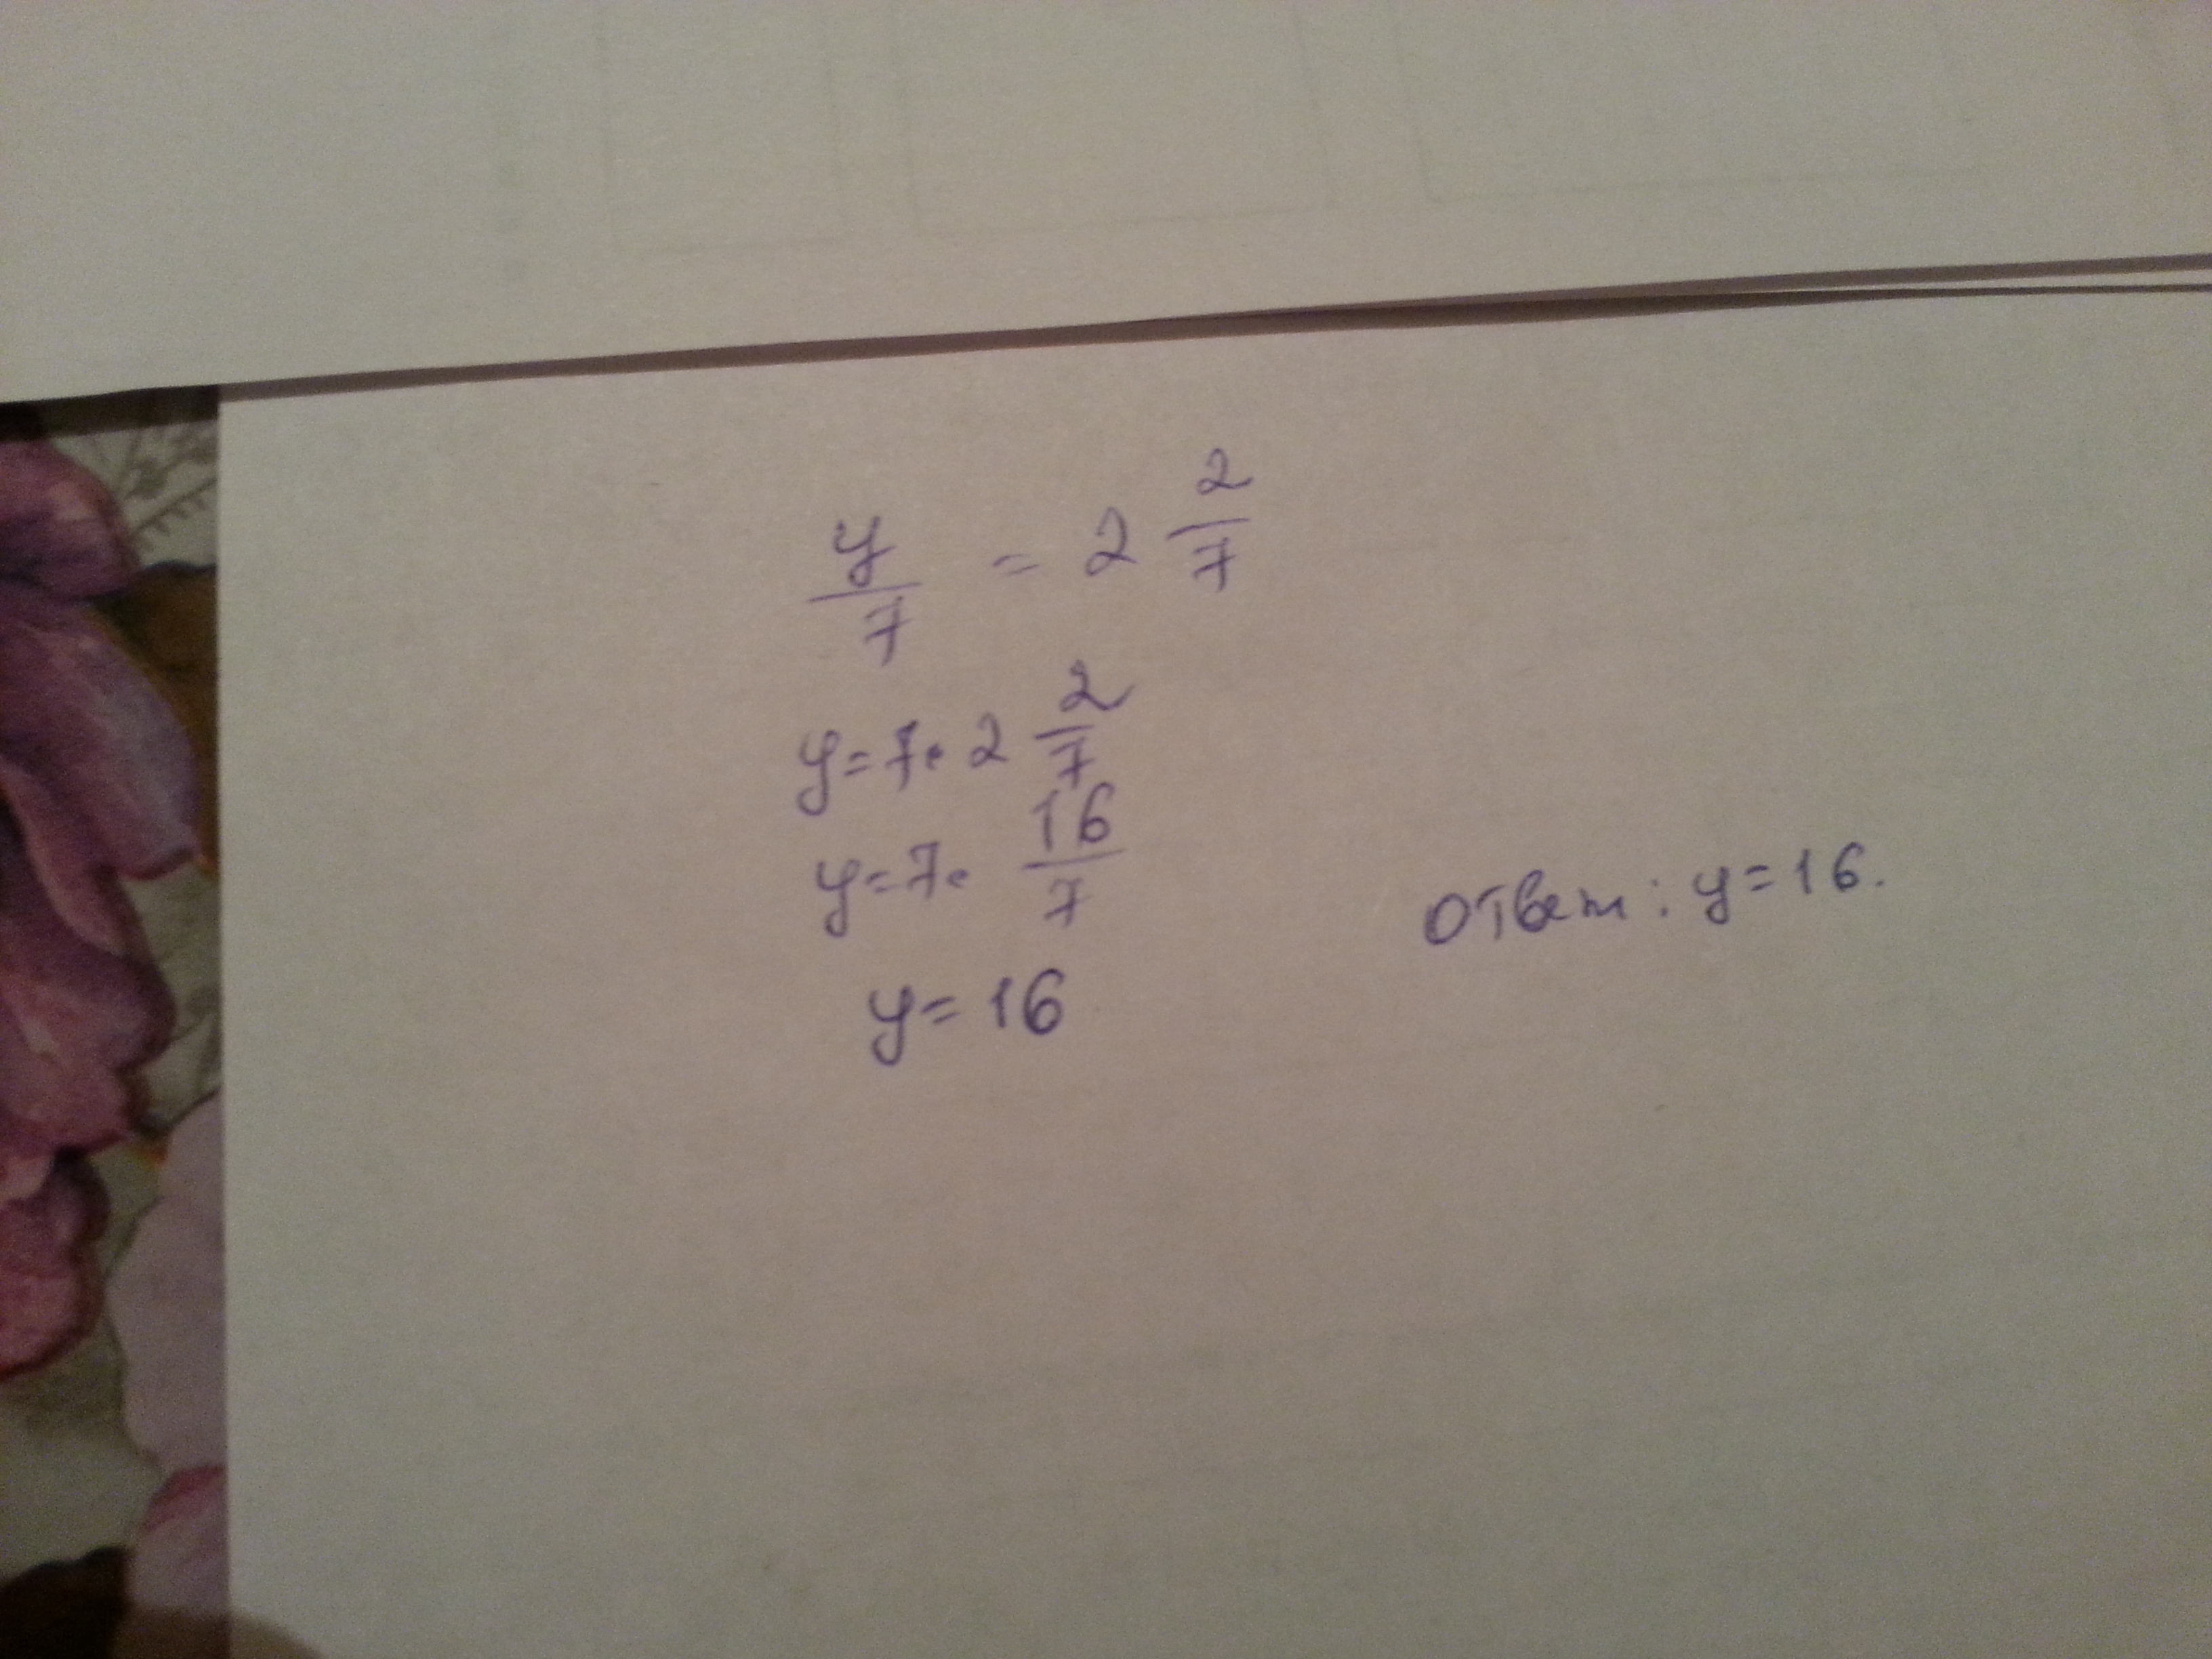 y/7 = 2 2/7
y = 7 · 2 2/7
y = 7 · 16/7
y = 16
Ответ: y = 16.